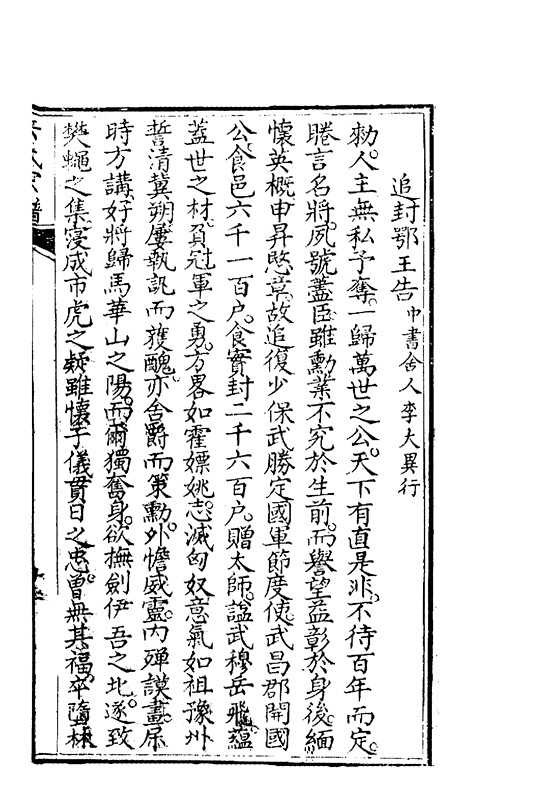 追封鄂王告中書舍人李大異行
勑人主無私予奪一歸萬世之公天下有直是非不待百年而定
睠言名將夙號藎臣雖勳業不究於生前而譽望益彰於身後緬
懷英概申畀愍章故追復少保武勝定國軍節度使武昌郡開國
公食邑六千一百户食實封二千六百户贈太師謚武穆岳飛藴
蓋世之材負冠軍之勇方畧如霍嫖姚志滅匈奴意氣如祖豫州
誓清冀朔屢執訊而獲醜亦舍爵而策勳外憺威靈内殫謨畫屬
時方講好將歸馬華山之陽而爾獨奮身欲撫劍伊吾之北遂致
樊蠅之集寖成市虎之疑雖懷子儀貫日之忠曾無其福卒墮林